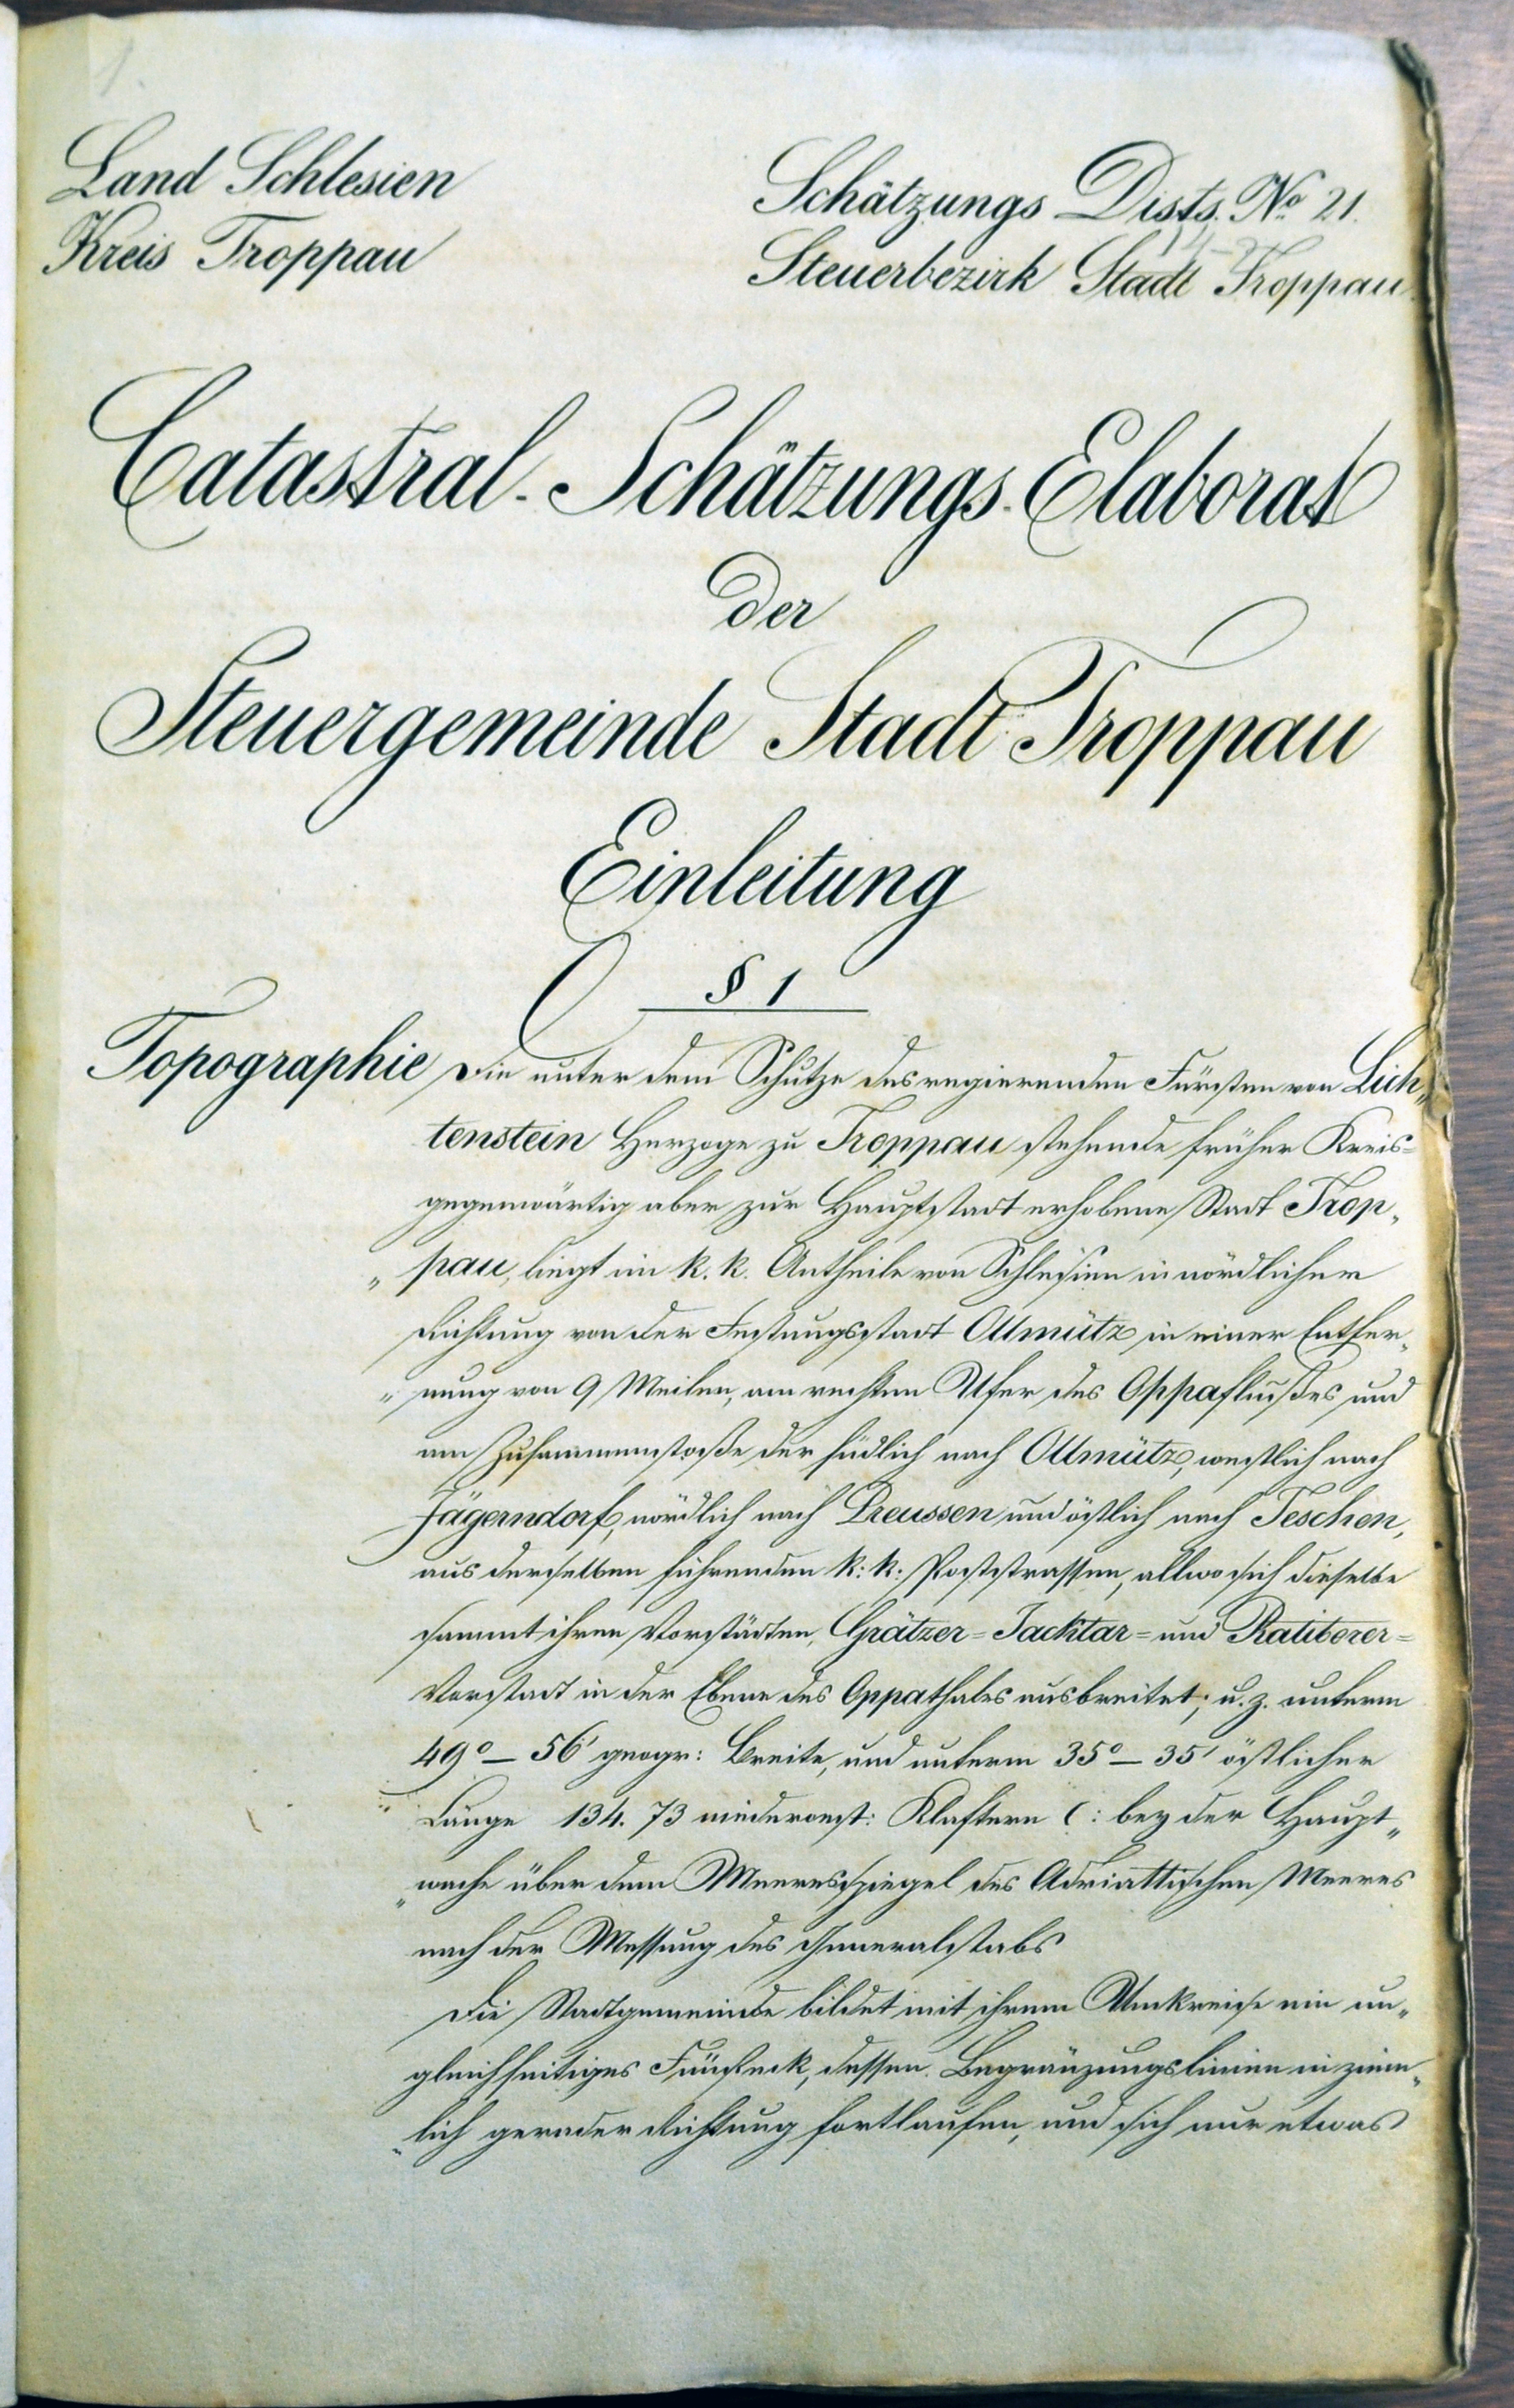 1.
Land Schlesien
Kreis Troppau
Schätzungs Distr. No 21.
Steuerbezirk Stadt Troppau
Catastral-Schätzungs-Elaborat
der
Steuergemeinde Stadt Troppau
Einleitung
§ 1
Topographie
Die unter dem Schutze des regierenden Fürsten von Lich„
tenstein Herzoge zu Troppau stehende früher Kreis=
gegenwärtig aber zur Hauptstadt erhobene Stadt Trop„
„pau, liegt im k. k. Antheile von Schlesien in nördlicher
Richtung von der Festungsstadt Ollmütz in einer Entfer„
„nung von 9 Meilen, am rechten Ufer des Oppaflußes und
am Zusammenstoße der südlich nach Ollmütz, westlich nach
Jägerndorf, nördlich nach Preussen und östlich nach Teschen,
aus derselben führenden k: k: Poststrassen, allwo sich dieselbe
sammt ihren Vorstädten, Grätzer= Jacktar= und Ratiborer=
Vorstadt in der Ebene des Oppathales ausbreitet; u. z. unterm
49°– 56' geogr: Breite, und unterm 35°– 35' östlicher
Länge 134. 73 niederoest: Klaftern (: bey der Haupt„
„wache über dem Meeresspiegel des Adriattischen Meeres
nach der Messung des Generalstabs
Die Stadtgemeinde bildet mit ihrem Umkreise ein un„
gleichseitiges Fünfeck, dessen Begränzungslinien in ziem„
„lich gerader Richtung fortlaufen, und sich nur etwas